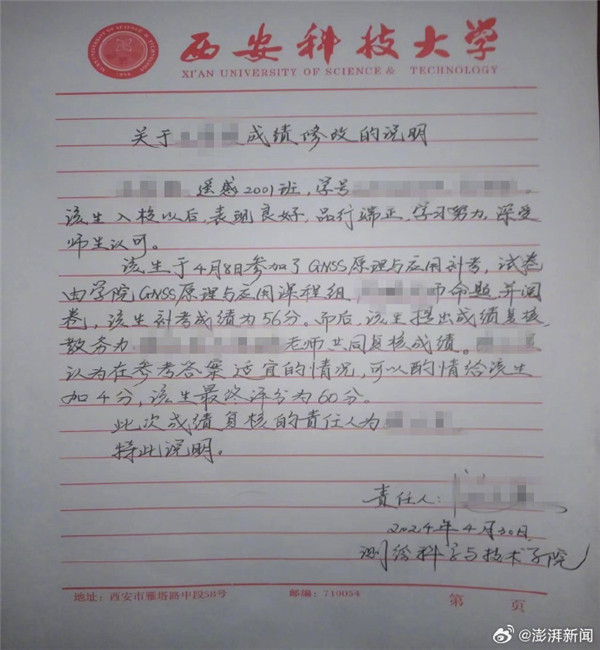 西安科技大学
XI'AN UNIVERSITY OF SCIENCE & TECHNOLOGY
关于成绩修改的说明
遥感2001班，学号
该生入校以后，表现良好，品行端正，学习努力，深受
师生认可。
该生于4月8日参加了GNSS原理与应用补考，试卷
由学院GNSS原理与应用课程组，命题，并阅
卷，该生补考成绩为56分。而后，该生提出成绩复核，
教务为老师共同复核成绩。
认为在参考答案适宜的情况，可以酌情给该生
加4分，该生最终评分为60分。
此次成绩复核的责任人为
特此说明。
责任人：
2024年4月30日
测绘科学与技术学院
地址：西安市雁塔路中段58号 邮编：710054 第 页
@澎湃新闻